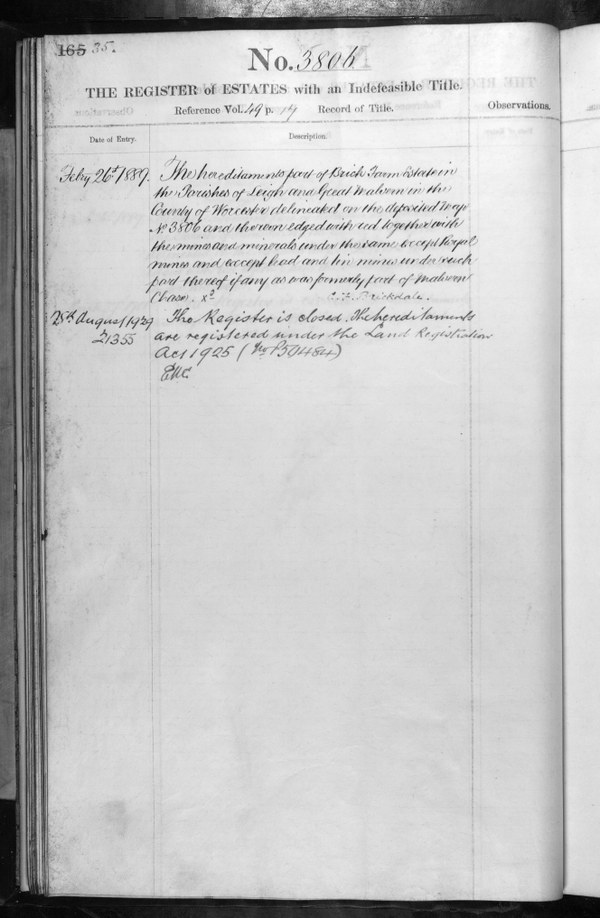 165 35.
No. 3806
THE REGISTER of ESTATES with an Indefeasible Title.
Reference Vol. 49 p. 79 Record of Title.
Observations.
Date of Entry.
Description.
Feby 26th 1889.
The hereditaments part of Brick Farm Estate in
the Parishes of Leigh and Great Malvern in the
County of Worcester delineated on the deposited Map
No 3806 and thereon edged with red together with
the mines and minerals under the same except Royal
mines and except lead and tin mines under such
part thereof if any as was formerly part of Malvern
Chase.
Brickdale.
25th August 1929
The Register is closed. The hereditaments
Z1355
are registered under the Land Registration
Act 1925 (No P50484)